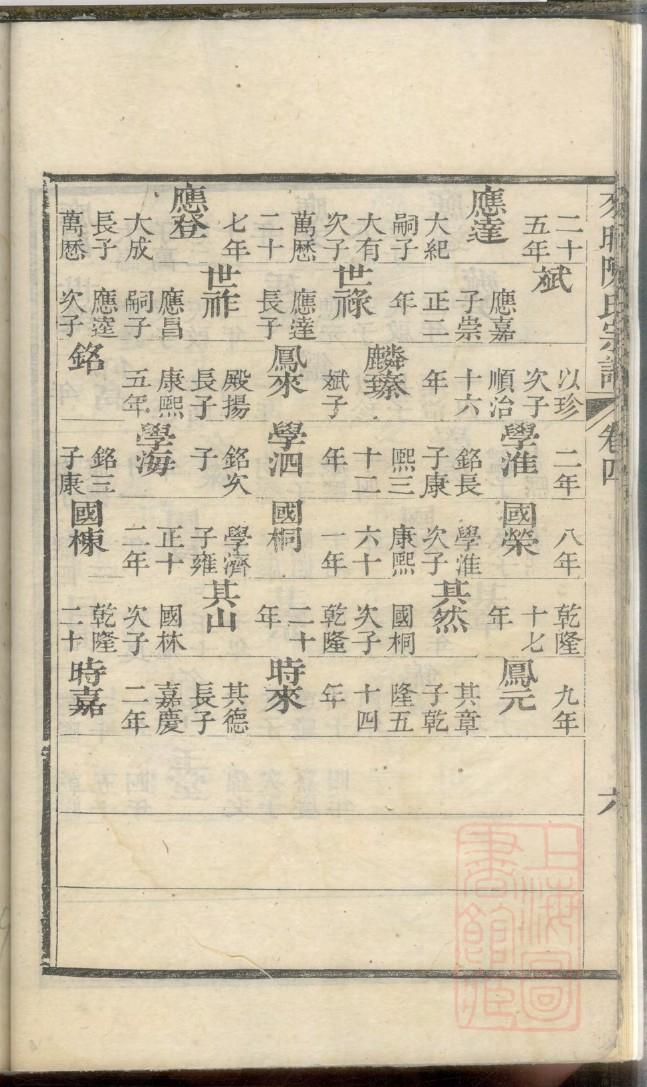 陳氏宗譜
卷四
六
二十
五年
應達
大紀
嗣子
大有
次子
萬歷
二十
七年
應登
大成
長子
萬歷
斌
應嘉
子崇
正三
年
世祿
應達
長子
世祚
應昌
嗣子
應達
次子
以珍
次子
順治
十六
年
麟瑧
斌子
鳳來
殿揚
長子
康熙
五年
銘
二年
學淮
銘長
子康
熙三
十二
年
學泗
銘次
子
學海
銘三
子康
八年
國榮
學淮
次子
康熙
六十
一年
國桐
學濟
子雍
正十
二年
國棟
乾隆
十七
年
其然
國桐
次子
乾隆
二十
年
其山
國林
次子
乾隆
二十
九年
鳳元
其章
子乾
隆五
十四
年
時來
其德
長子
嘉慶
二年
時嘉
上海圖
書館藏